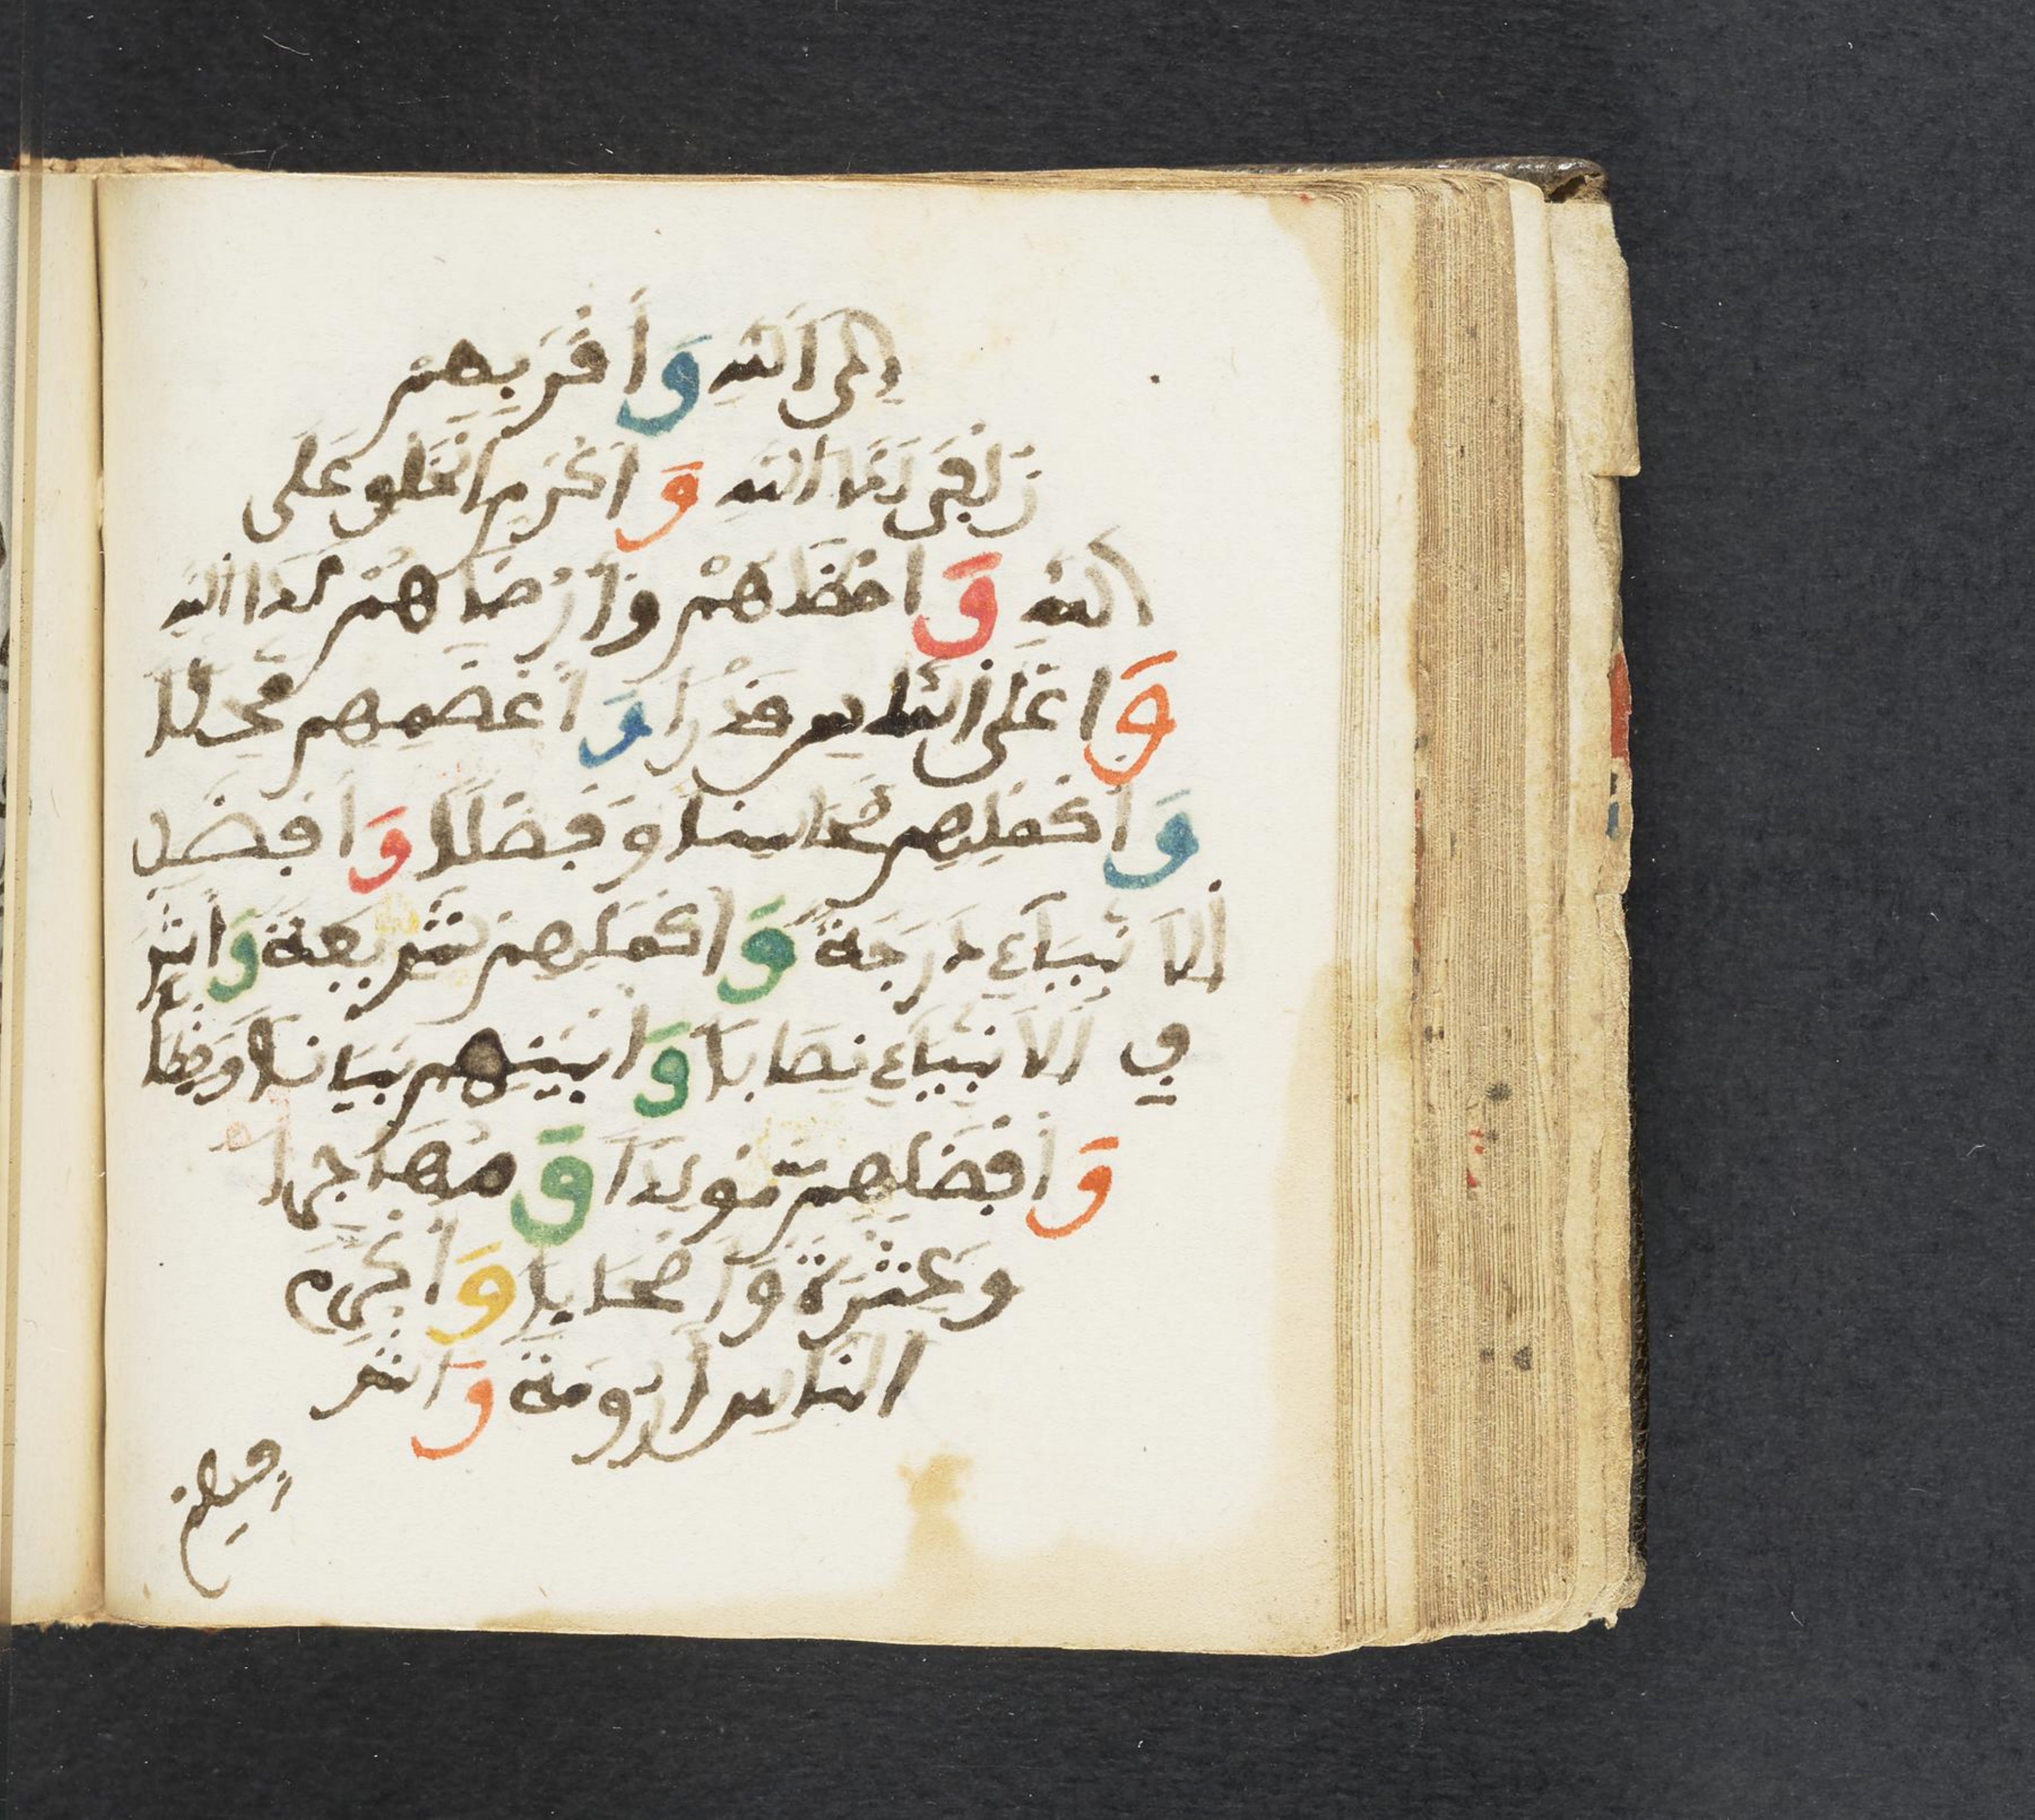 إِلَى اللَّهِ وَأَقْرَبِهِمْ
زُلْفَى لَدَا اللَّهِ وَأَكْرَمِ الْخَلْقِ عَلَى
اللَّهِ وَأَحْظَاهُمْ وَأَرْضَاهُمْ لَدَا اللَّهِ
وَأَعْلَى النَّاسِ قَدْرًا وَأَعْظَمِهِم مَّحَلًّا
وَأَكْمَلِهِم مَّحَاسِنًا وَفَضْلًا وَأَفْضَلِ
الْأَنْبِيَآءِ دَرَجَةً وَأَكْمَلِهِمْ شَرِيعَةً وَأَشْرَ
فِ الْأَنْبِيَآءِ نِصَابًا وَأَبْيَنِهِم بَيَانًا وَخِطَابًا
وَأَفْضَلِهِم مَّوْلِدًا وَمُهَاجَرًا
وَعِتْرَةً وَأَصْحَابًا وَأَكْرَمِ
النَّاسِ أَرُومَةً وَأَشْرَ
فِهِمْ